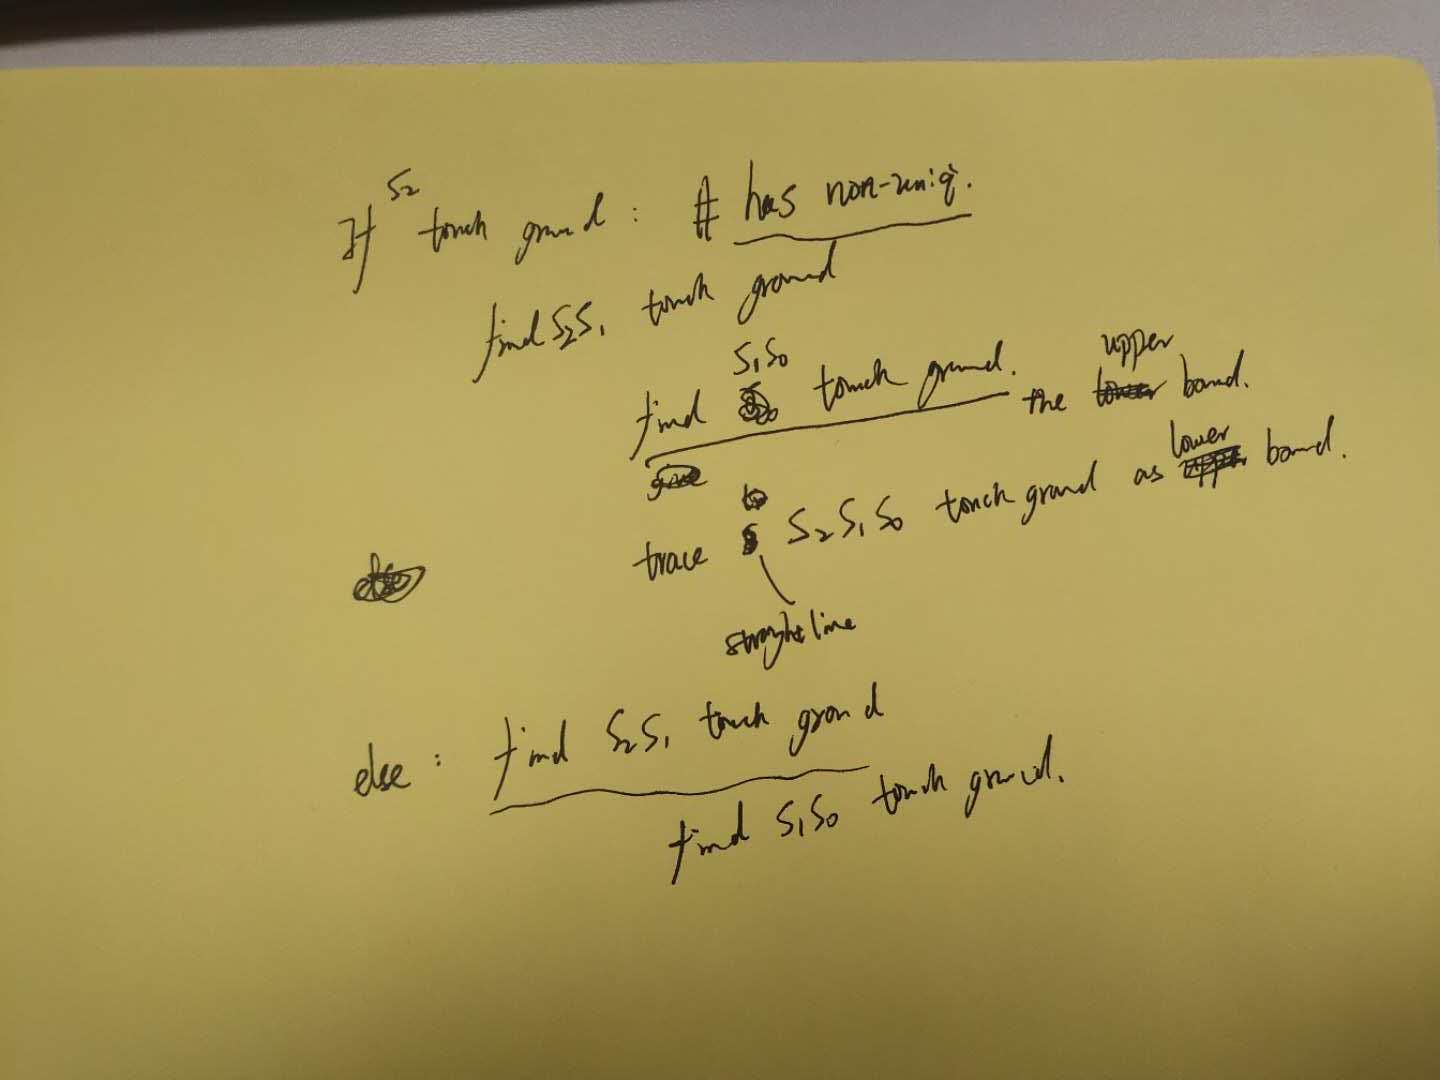 If S₂ touch ground : # has non-uniq.
find S₂S₁ touch ground
find S₁S₀ touch ground. the upper band.
trace S₂S₁S₀ touch ground as lower band.
straight line
else : find S₂S₁ touch ground
find S₁S₀ touch ground.